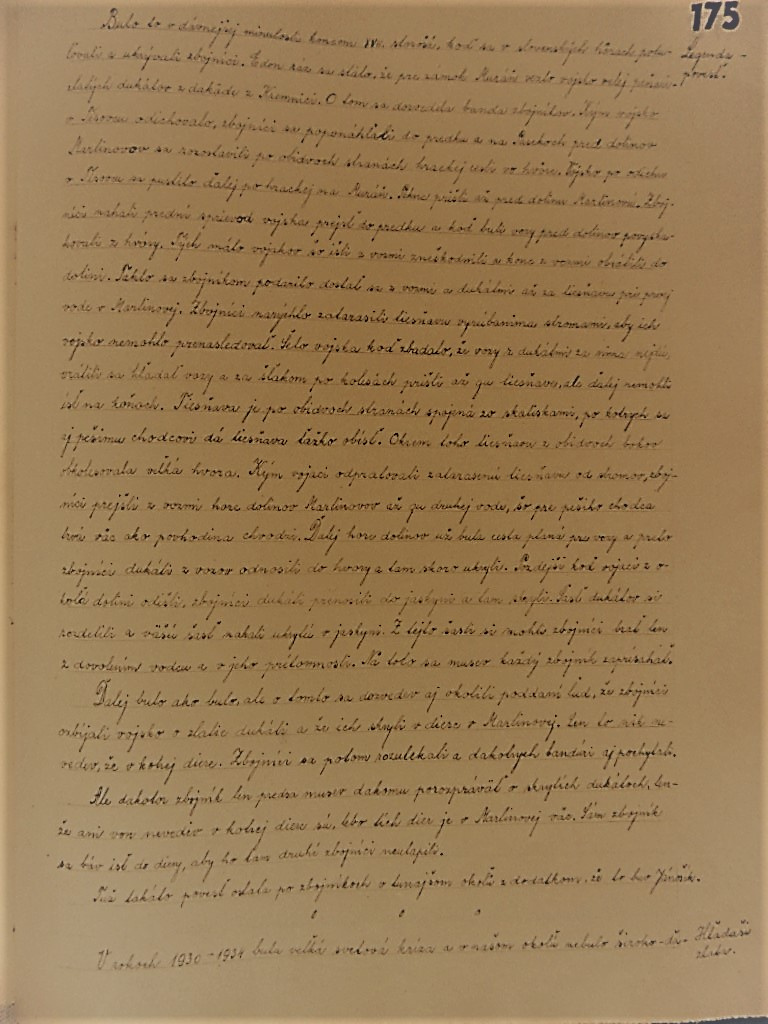 175
Legenda -
povesť.
Bulo to v dávnejšej minulosti koncom XVII. storočá, keď sa v slovenských hôrach potu-
lovali a ukrývali zbojníci. Edon ráz sa stálo, že pre zámok Muráň viezlo vojsko veľej peňazí -
zlatých dukátov z dakáde z Kremnici. O tom sa dozvedela banda zbojníkov. Kým vojsko
v Tisovcu odichovalo, zbojníci sa poponáhľali do predku a na Pasekoch pred dolinov
Martinovov sa rozostavili po obidvoch stranách hrackej cesti vo hvore. Vojsko po odichu
v Tisovcu sa pustilo ďalej po hrackej na Muráň. Pekne prišli až pred dolinu Martinovú. Zboj-
níci nahali prední sprievod vojska prejsť do predku a keď buli vozy pred dolinov povyska-
kovali z hvory. Tých málo vojakov čo išli z vozmi zneškodnili a kone z vozmi obrátili do
dolini. Takto sa zbojníkom podarilo dostať sa z vozmi a dukátmi až za tiesňavu pri prvej
vode v Martinovej. Zbojníci narýchlo zatarasili tiesňavu vyrúbanima stromami, aby ich
vojsko nemohlo prenasledovať. Čelo vojska keď zbadalo, že vozy z dukátmi za nima nejdú,
vrátili sa hľadať vozy a za šľakom po kolesách prišli až gu tiesňave, ale ďalej nemohli
ísť na koňoch. Tiesňava je po obidvoch stranách spojená zo skaliskami, po kotrych sa
aj pešimu chodcovi dá tiesňava ťažko obísť. Okrem toho tiesňavu z obidvoch bokov
obkolesovala veľká hvora. Kým vojaci odpratovali zatarasenú tiesňavu od stromov, zboj-
níci prejšli z vozmi hore dolinov Martinovov až gu druhej vode, čo pre pešiho chodca
trvá vác ako povhodina chvodzi. Ďalej hore dolinov už bula cesta planá pre vozy a preto
zbojníci dukáti z vozov odnosili do hvory a tam skoro ukryli. Pozdejší keď vojaci z o-
kola dolini odišli, zbojníci dukáti prenosili do jaskyni a tam skryli. Časť dukátov si
rozdelili a väčšú časť nahali ukrytú v jaskyni. Z tejto časti si mohli zbojníci brať len
z dovolením vodcu a v jeho prítomnosti. Na toto sa musev každý zbojník zaprisahať.
Ďalej bulo ako bulo, ale o tomto sa dozvedev aj okolití poddaní ľud, že zbojníci
ozbíjali vojsko o zlatie dukáti a že ich skryli v diere v Martinovej. Len to nik ne-
vedev, že v kotrej diere. Zbojníci sa potom rozutekali a dakotrych pandúri aj pochytali.
Ale dakotor zbojník len predsa musev dakomu porozprávať o skrytích dukátoch, len-
že ani von nevedev v kotrej diere sú, lebo tích dier je v Martinovej vác. Sám zbojník
sa báv ísť do diery, aby ho tam druhí zbojníci neulapili.
Tuž takáto povesť ostala po zbojníkoch v tunajšom okolí z dodatkom, že to buv Jánošík.
V rokoch 1930-1934 bula velká svetová kríza a v našom okolí nebulo široko-ďa-
Hľadači
zlata.